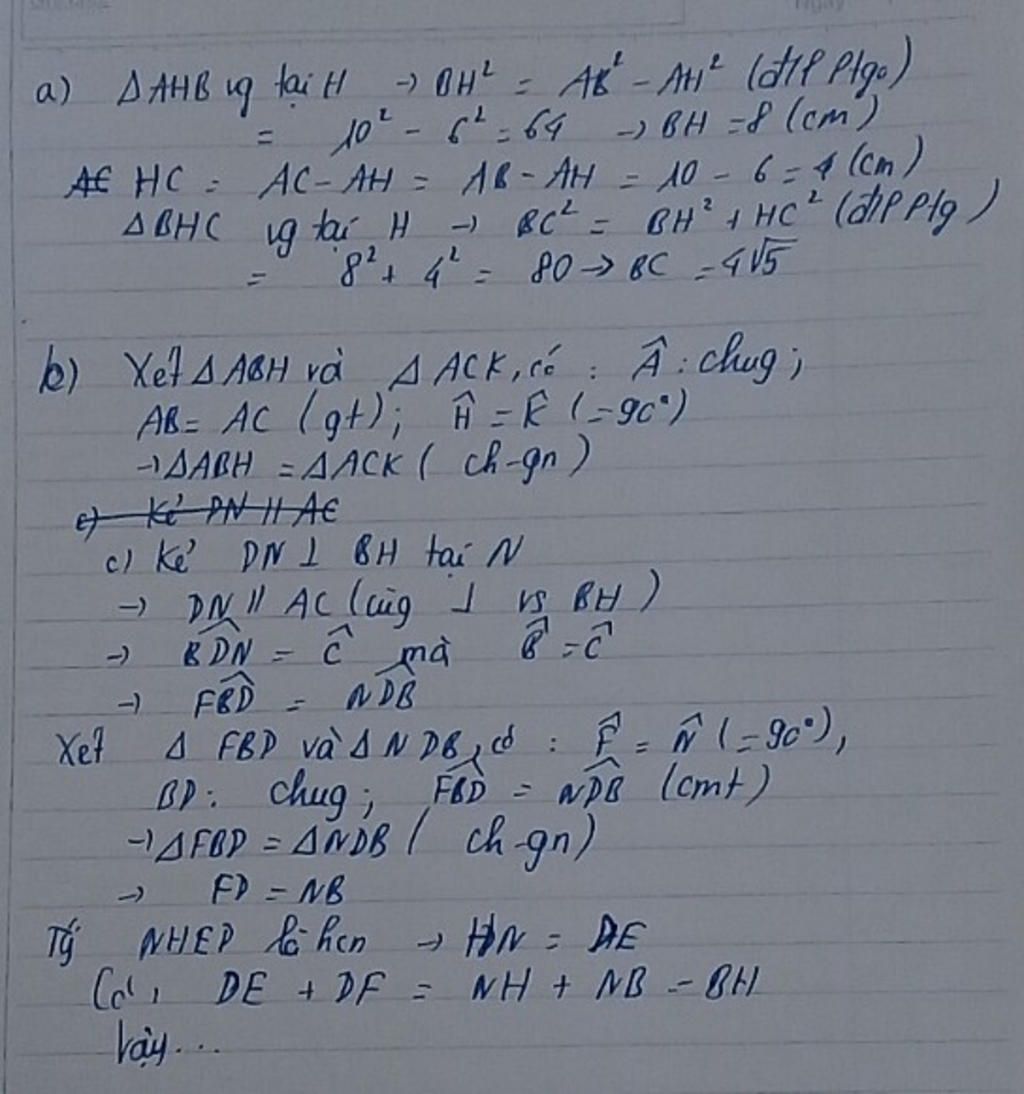 a) ΔAHB vg tại H → BH² = AB² - AH² (đlP Ptgo)
= 10² - 6² = 64 → BH = 8 (cm)
HC = AC - AH = AB - AH = 10 - 6 = 4 (cm)
ΔBHC vg tại H → BC² = BH² + HC² (đlP Ptg)
= 8² + 4² = 80 → BC = 4√5
b) Xét ΔABH và ΔACK, có : Â : chug ;
AB = AC (gt) ; Ĥ = K̂ (= 90°)
→ ΔABH = ΔACK ( ch-gn )
c) Kẻ DN // AC
c) Kẻ DN ⊥ BH tại N
→ DN // AC (cùg ⊥ vs BH )
→ BDN̂ = Ĉ mà B̂ = Ĉ
→ FBD̂ = NDB̂
Xét Δ FBD và Δ NDB, có : F̂ = N̂ (= 90°),
BD : chug ; FBD̂ = NDB̂ (cmt)
→ ΔFBD = ΔNDB ( ch-gn )
→ FD = NB
Tg NHED là hcn → HN = DE
Có, DE + DF = NH + NB = BH
Vậy...